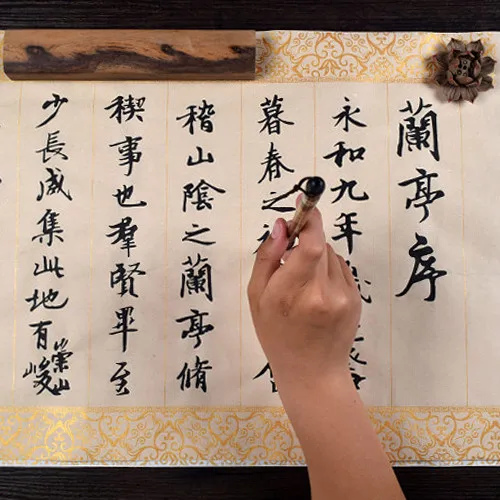 蘭亭序
永和九年
暮春之
稽山陰之蘭亭脩
稧事也羣賢畢至
少長咸集此地有崇山峻